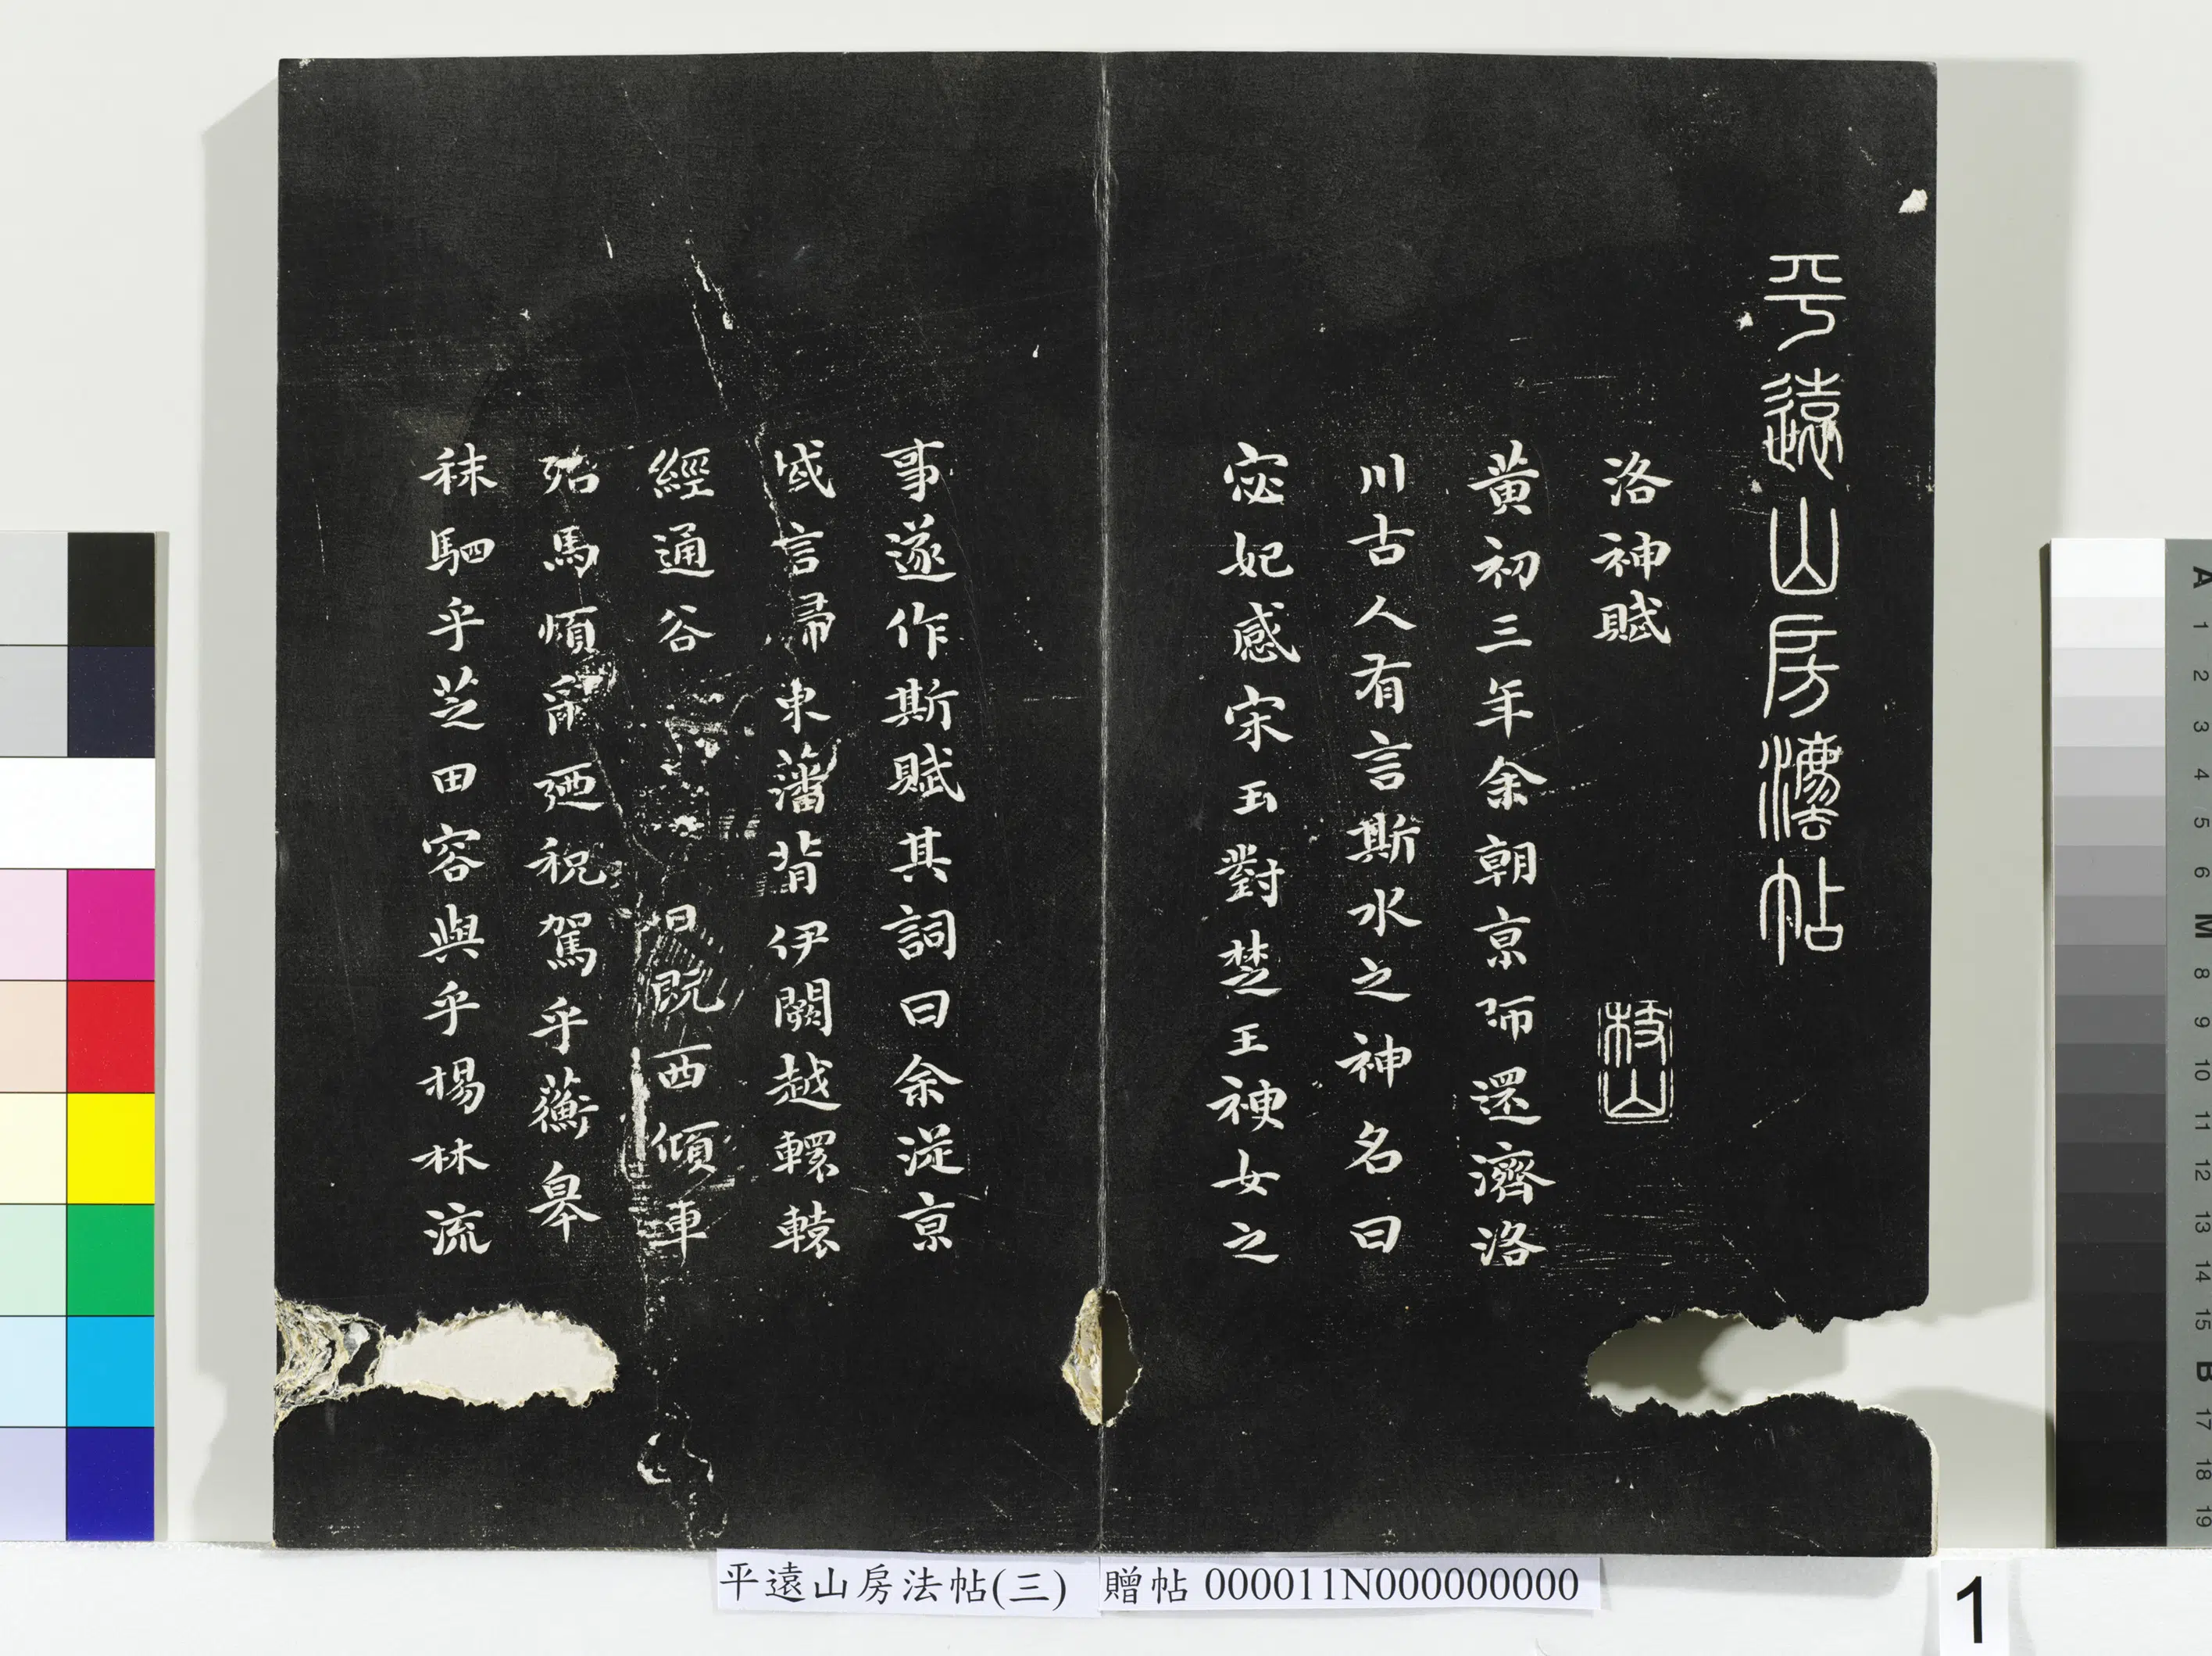 平遠山房法帖
洛神賦
枝山
黃初三年余朝京師還濟洛
川古人有言斯水之神名曰
宓妃感宋玉對楚王神女之
事遂作斯賦其詞曰余從京
域言歸東藩背伊闕越轘轅
經通谷日既西傾車
殆馬煩爾迺稅駕乎蘅皋
秣駟乎芝田容與乎楊林流
平遠山房法帖(三) 贈帖 000011N000000000
1
A 1 2 3 4 5 6 M 8 9 10 11 12 13 14 15 B 17 18 19